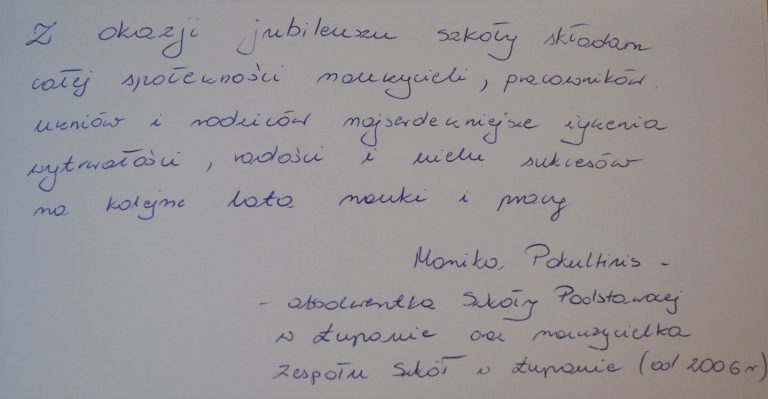 Z okazji jubileuszu szkoły składam
całej społeczności nauczycieli, pracowników
uczniów i rodziców najserdeczniejsze życzenia
wytrwałości, radości i wielu sukcesów
na kolejne lata nauki i pracy
Monika Pokultinis -
- absolwentka Szkoły Podstawowej
w Łupawie oraz nauczycielka
Zespołu Szkół w Łupawie (od 2006 r)